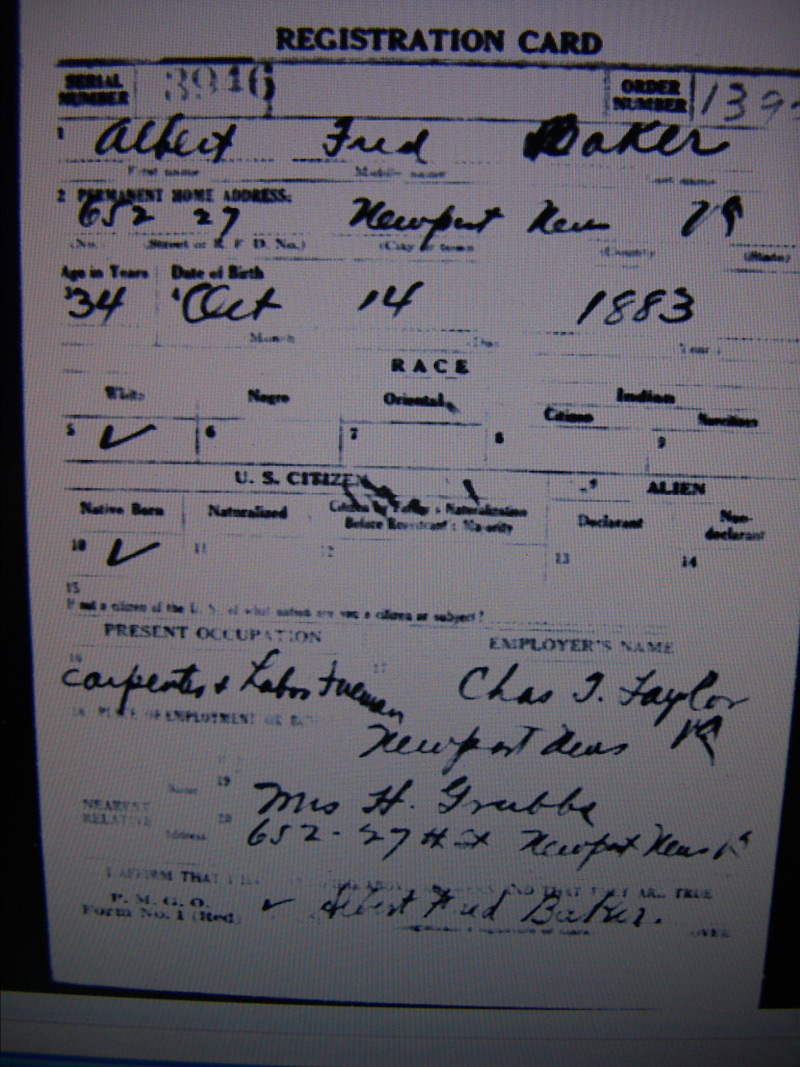 REGISTRATION CARD
SERIAL NUMBER 3946 ORDER NUMBER 139
1 Albert Fred Baker
First name Middle name Last name
2 PERMANENT HOME ADDRESS:
652 27 Newport News Va
(No.) (Street or R. F. D. No.) (City or town) (County) (State)
Age in Years Date of Birth
3 34 4 Oct 14 1883
Month Day Year
RACE
White Negro Oriental Indian
Citizen Noncitizen
5 ✓ 6 7 8 9
U. S. CITIZEN ALIEN
Native Born Naturalized Citizen by Father's Naturalization Before Registrant's Majority Declarant Non-declarant
10 ✓ 11 12 13 14
15
If not a citizen of the U. S. of what nation are you a citizen or subject?
PRESENT OCCUPATION EMPLOYER'S NAME
16 17
Carpenter & Labor Foreman Chas T. Taylor
18 PLACE OF EMPLOYMENT OR
Newport News Va
Name 19 Mrs H. Grubbs
NEAREST RELATIVE
Address 20 652-27th St Newport News Va
I AFFIRM THAT I HAVE ABOVE ANSWERS AND THAT THEY ARE TRUE
P. M. G. O.
Form No. 1 (Red) ✓ Albert Fred Baker.
OVER